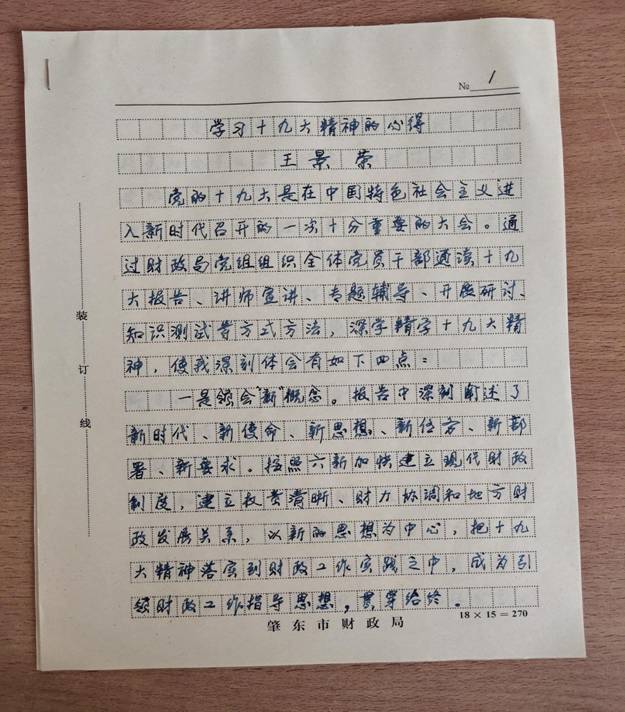 № 1
学习十九大精神的心得
王景荣
党的十九大是在中国特色社会主义进
入新时代召开的一次十分重要的大会。通
过财政局党组组织全体党员干部通读十九
大报告、讲师宣讲、专题辅导、开展研讨、
知识测试等方式方法，深学精学十九大精
神，使我深刻体会有如下四点：
一是领会“新”概念。报告中深刻阐述了
新时代、新使命、新思想、新任务、新部
署、新要求。按照六新加快建立现代财政
制度，建立权责清晰、财力协调和地方财
政发展关系，以新的思想为中心，把十九
大精神落实到财政工作实践之中，成为引
领财政工作指导思想，贯穿给终。
装
订
线
肇东市财政局
18×15=270